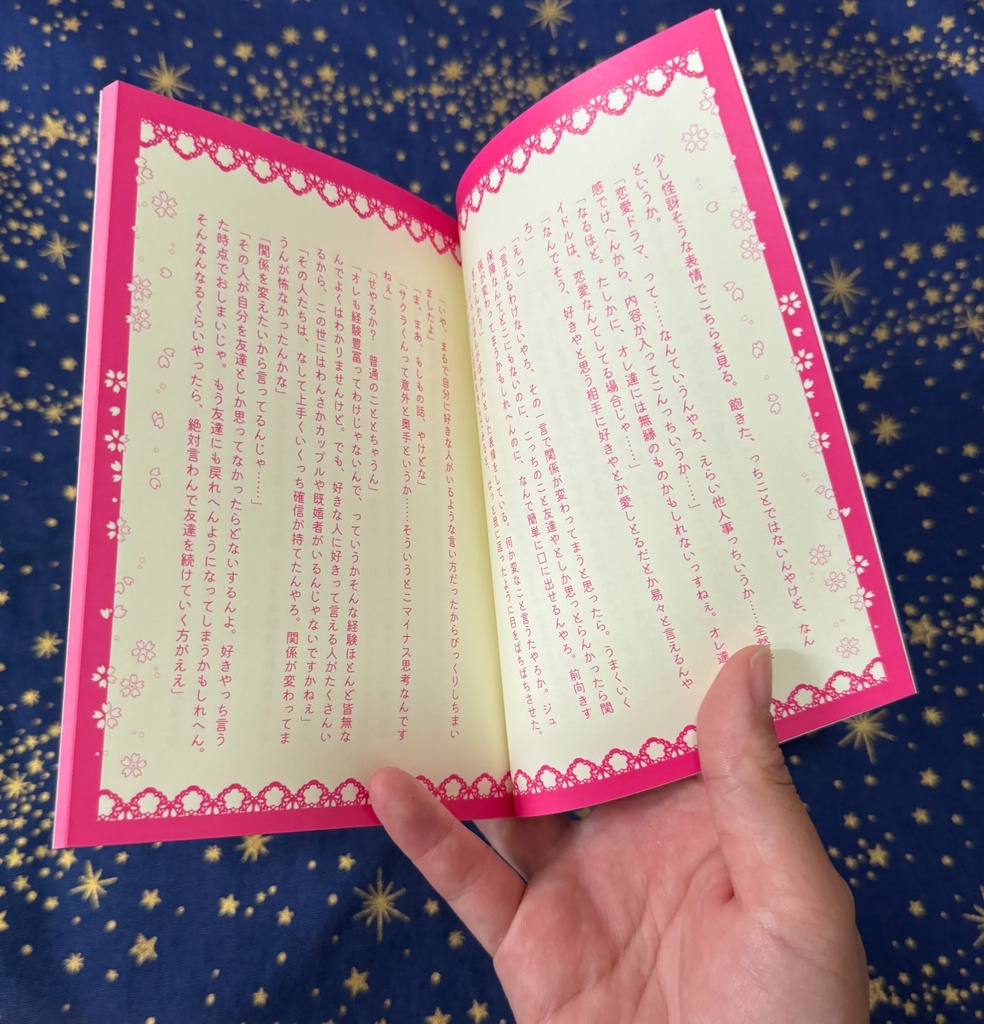 少し怪訝そうな表情でこちらを見る。飽きた、っちことではないんやけど、なん
というか。
「恋愛ドラマ、って……なんていうんやろ、えらい他人事っちいうか……全然
感でけへんから、内容が入ってこんっちいうか……」
「なるほど。たしかに、オレ達には無縁のものかもしれないっすねぇ。オレ達
イドルは、恋愛なんてしてる場合じゃ……」
「なんでそう、好きやと思う相手に好きやとか愛しとるだとか易々と言えるんや
ろ」
「えっ」
「言えるわけないやろ、その一言で関係が変わってまうと思ったら。うまくいく
保障なんてどこにもないのに、こっちのこと友達やとしか思っとらんかったら関
係が変わってまうかもしれへんのに、なんで簡単に口に出せるんやろ。前向きす
表情をしている。何か変なこと言うたやろか。ジュ
ように目をぱちぱちさせた。
「いや、まるで自分に好きな人がいるような言い方だったからびっくりしちまい
ましたよ」
「ま、まあ、もしもの話、やけどな」
「サクラくんって意外と奥手というか……そういうとこマイナス思考なんです
ねぇ」
「せやろか? 普通のことちゃうん」
「オレも経験豊富ってわけじゃないんで、っていうかそんな経験ほとんど皆無な
んでよくはわかりませんけど。でも、好きな人に好きって言える人がたくさんい
るから、この世にはわんさかカップルや既婚者がいるんじゃないですかねぇ」
「その人たちは、なして上手くいくっち確信が持てたんやろ。関係が変わってま
うんが怖なかったんかな」
「関係を変えたいから言ってるんじゃ……」
「その人が自分を友達としか思ってなかったらどないするんよ。好きやっち言う
た時点でおしまいじゃ。もう友達にも戻れへんようになってしまうかもしれへん。
そんなんなるくらいやったら、絶対言わんで友達を続けていく方がええ」